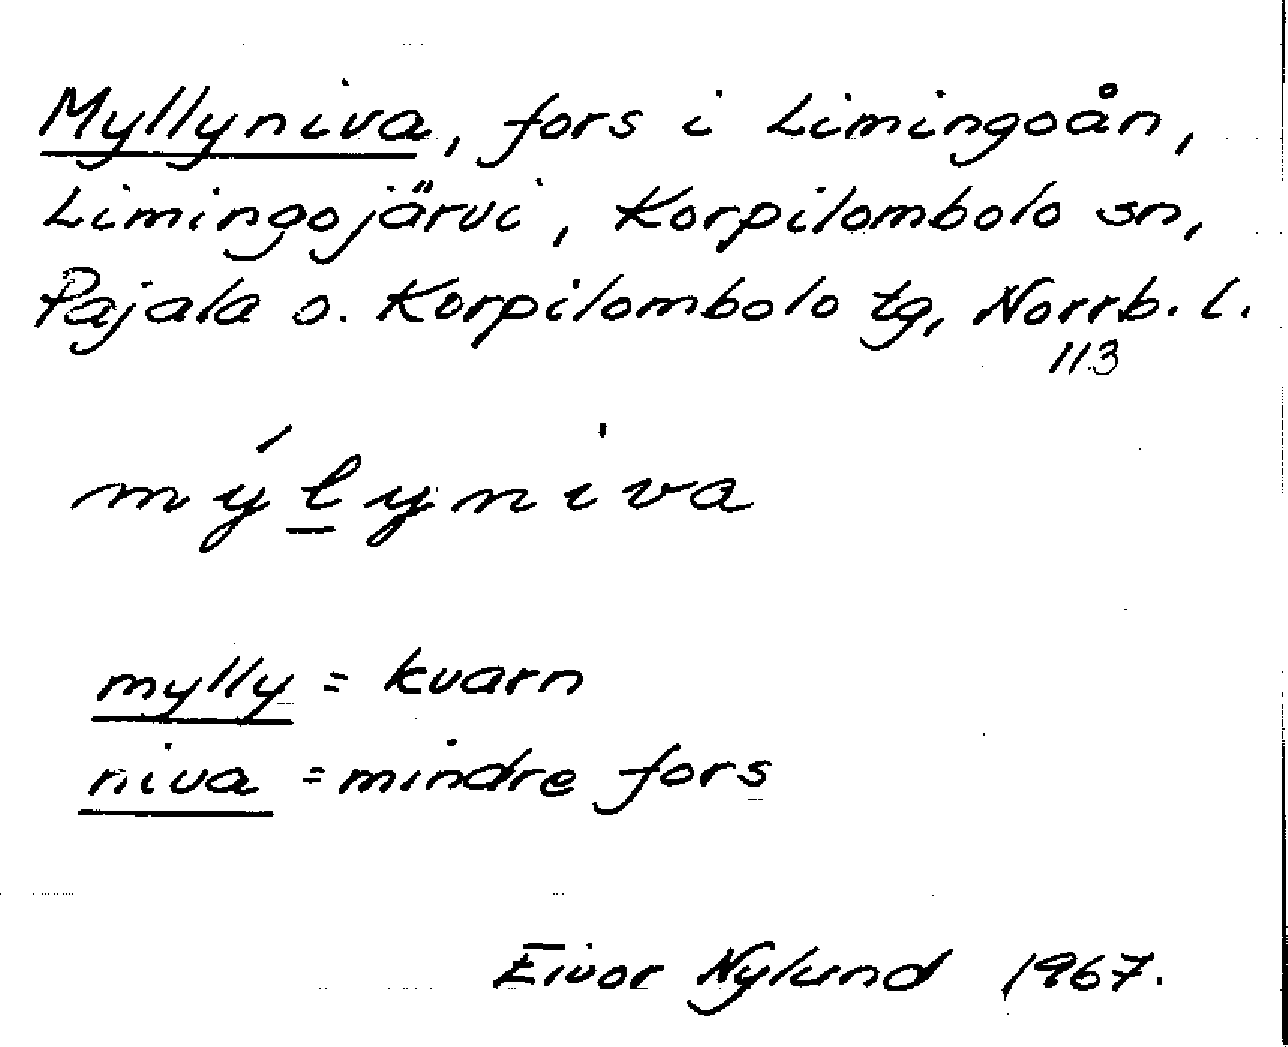 Myllyniva, fors i Limingoån,
Limingojärvi, Korpilombolo sn,
Pajala o. Korpilombolo tg, Norrb. l.
113
mýl̲yniva
mylly = kvarn
niva = mindre fors
Eivor Nylund 1967.